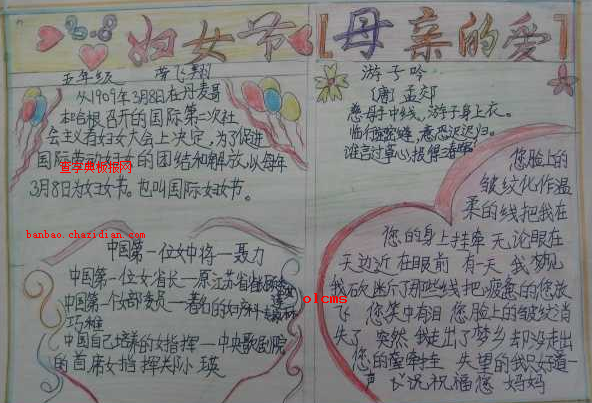 3.8 妇女节
五年级
从1909年3月8日在丹麦哥
本哈根召开的国际第二次社
会主义者妇女大会上决定,为了促进
国际劳动妇女的团结和解放,以每年
3月8日为妇女节。也叫国际妇女节。
查字典板报网
banbao.chazidian.com
中国第一位女中将—聂力
中国第一位女省长—原江苏省
中国第一个女部委员—著名的妇产科
巧稚
中国自己培养的女指挥—中央歌剧院
的首席女指挥关小瑛
olcms
【母亲的爱】
游子吟
(唐)孟郊
慈母手中线,游子身上衣。
临行密密缝,意恐迟迟归。
谁言寸草心,报得三春晖
您脸上的
皱纹化作温
柔的线把我在
您的身上挂牵 无论眼在
天边近在眼前 有一天 我梦见
我砍断了那些线把疲惫的您放
飞 您笑中有泪 您脸上的皱纹消
失了 突然 我走出了梦乡 却没走出
您的牵挂 失望的我只好道一
声 说祝福您 妈妈